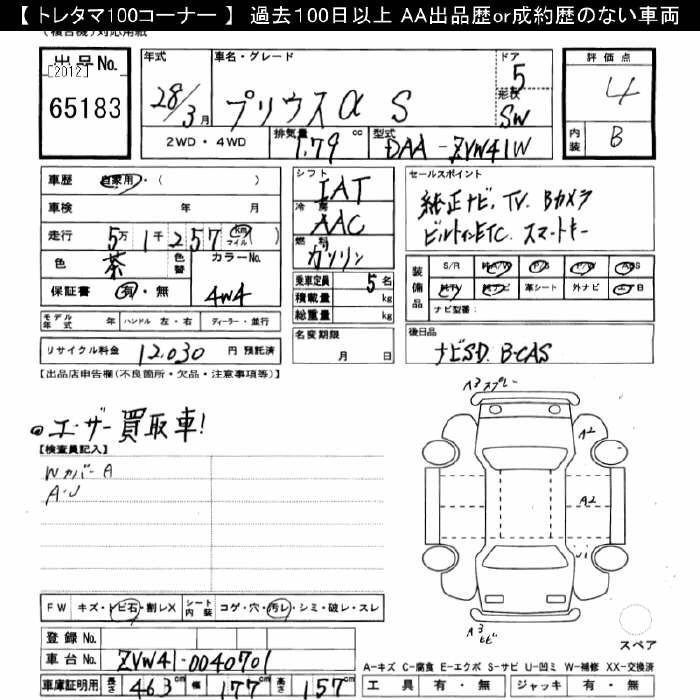 【 トレタマ100コーナー 】 過去100日以上 AA出品歴or成約歴のない車両
出品No.
[2012]
65183
年式
28/3月
車名・グレード
プリウスα S
ドア
5
形状
SW
評価点
4
内装
B
2WD・4WD
排気量
1.79 cc
型式
DAA-ZVW41W
車歴 自家用・( )
車検 年 月
走行 5万1千257 (km マイル)
色 茶 色替 カラーNo.
保証書 有・無 4W4
モデル年式 年 ハンドル 左・右 ディーラー・並行
リサイクル料金 12,030 円 預託済
シフト
IAT
冷房
AAC
燃料
ガソリン
乗車定員 5名
積載量 kg
総重量 kg
名変期限
月 日
セールスポイント
純正ナビ. TV. Bカメラ
ビルトインETC. スマートキー
装備品 S/R 純A/W P/S P/W ABS
純TV 純ナビ 革シート 外ナビ エアB
ナビ型番:
後日品
ナビSD. B-CAS
【出品店申告欄(不良箇所・欠品・注意事項等)】
ユーザー買取車!
【検査員記入】
Wカバー A
A・U
A3 スプレー
A2
A2
U1
A3
FW キズ・トビ石・割レX シート内装 コゲ・穴・汚レ・シミ・破レ・スレ
登録 No.
車台 No. ZVW41-0040701
車庫証明用 長さ 463cm 幅 177cm 高さ 157cm
スペア
A-キズ C-腐食 E-エクボ S-サビ U-凹ミ W-補修 XX-交換済
工具 有・無 ジャッキ 有・無